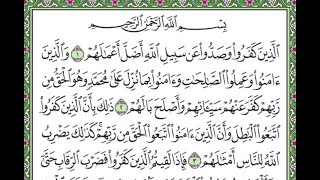 بِسْمِ اللَّهِ الرَّحْمَٰنِ الرَّحِيمِ
الَّذِينَ كَفَرُوا وَصَدُّوا عَن سَبِيلِ اللَّهِ أَضَلَّ أَعْمَٰلَهُمْ ١ وَالَّذِينَ
ءَامَنُوا وَعَمِلُوا الصَّٰلِحَٰتِ وَءَامَنُوا بِمَا نُزِّلَ عَلَىٰ مُحَمَّدٍ وَهُوَ الْحَقُّ مِن
رَّبِّهِمْ كَفَّرَ عَنْهُمْ سَيِّـَٔاتِهِمْ وَأَصْلَحَ بَالَهُمْ ٢ ذَٰلِكَ بِأَنَّ الَّذِينَ كَفَرُوا
اتَّبَعُوا الْبَٰطِلَ وَأَنَّ الَّذِينَ ءَامَنُوا اتَّبَعُوا الْحَقَّ مِن رَّبِّهِمْ كَذَٰلِكَ يَضْرِبُ
اللَّهُ لِلنَّاسِ أَمْثَٰلَهُمْ ٣ فَإِذَا لَقِيتُمُ الَّذِينَ كَفَرُوا فَضَرْبَ الرِّقَابِ حَتَّىٰ